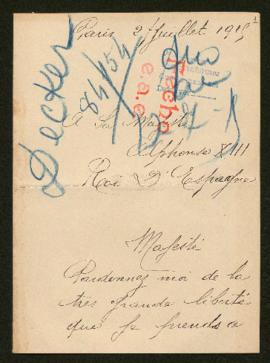 Paris 2 Juillet 191
Decker
84154
Hecho
e.a.e.
A Sa Majesté
Alphonse XIII
Roi d'Espagne
Majesté
Pardonnez moi de la
très grande liberté
que je prends a